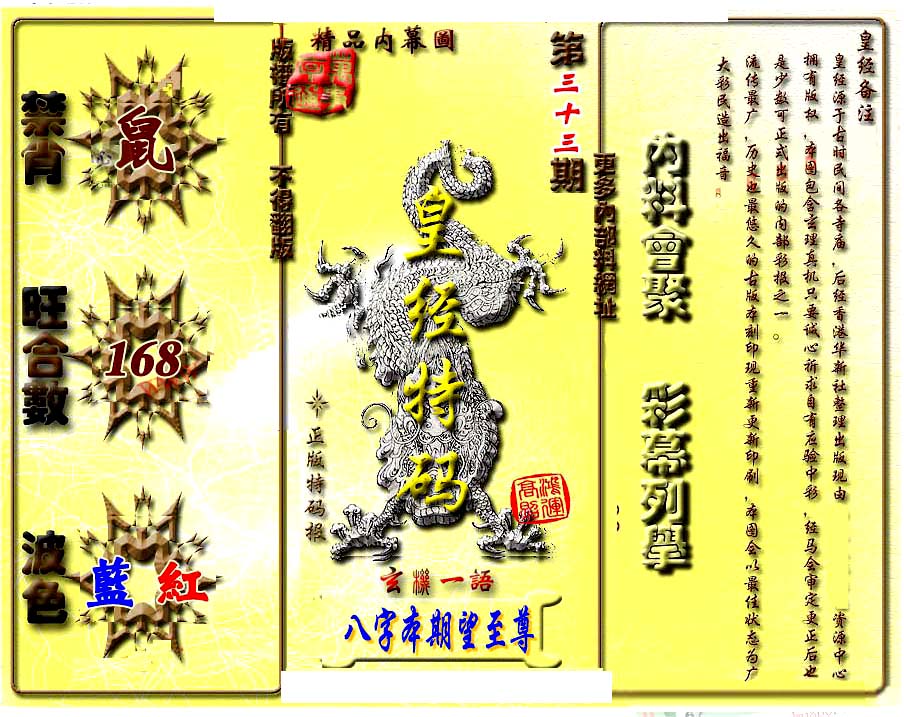 皇经备注
皇经源于古时民间各寺庙，后经香港华新社整理出版现由
资源中心
拥有版权，本图包含玄理真机只要诚心祈求自有应验中彩，经马会审定更正后也
是少数可正式出版的内部彩报之一。
流传最广，历史也最悠久的古版本刻印现重新更新印刷，本图会以最佳状态为广
大彩民造出福音
內料會聚
彩幕列舉
更多內部料網址
精品內幕圖
第三十三期
版權所有 不得翻版
皇经特码
正版特码报
鴻運
高照
玄機一語
八字本期望至尊
禁肖
鼠
旺合數
168
波色
藍 紅